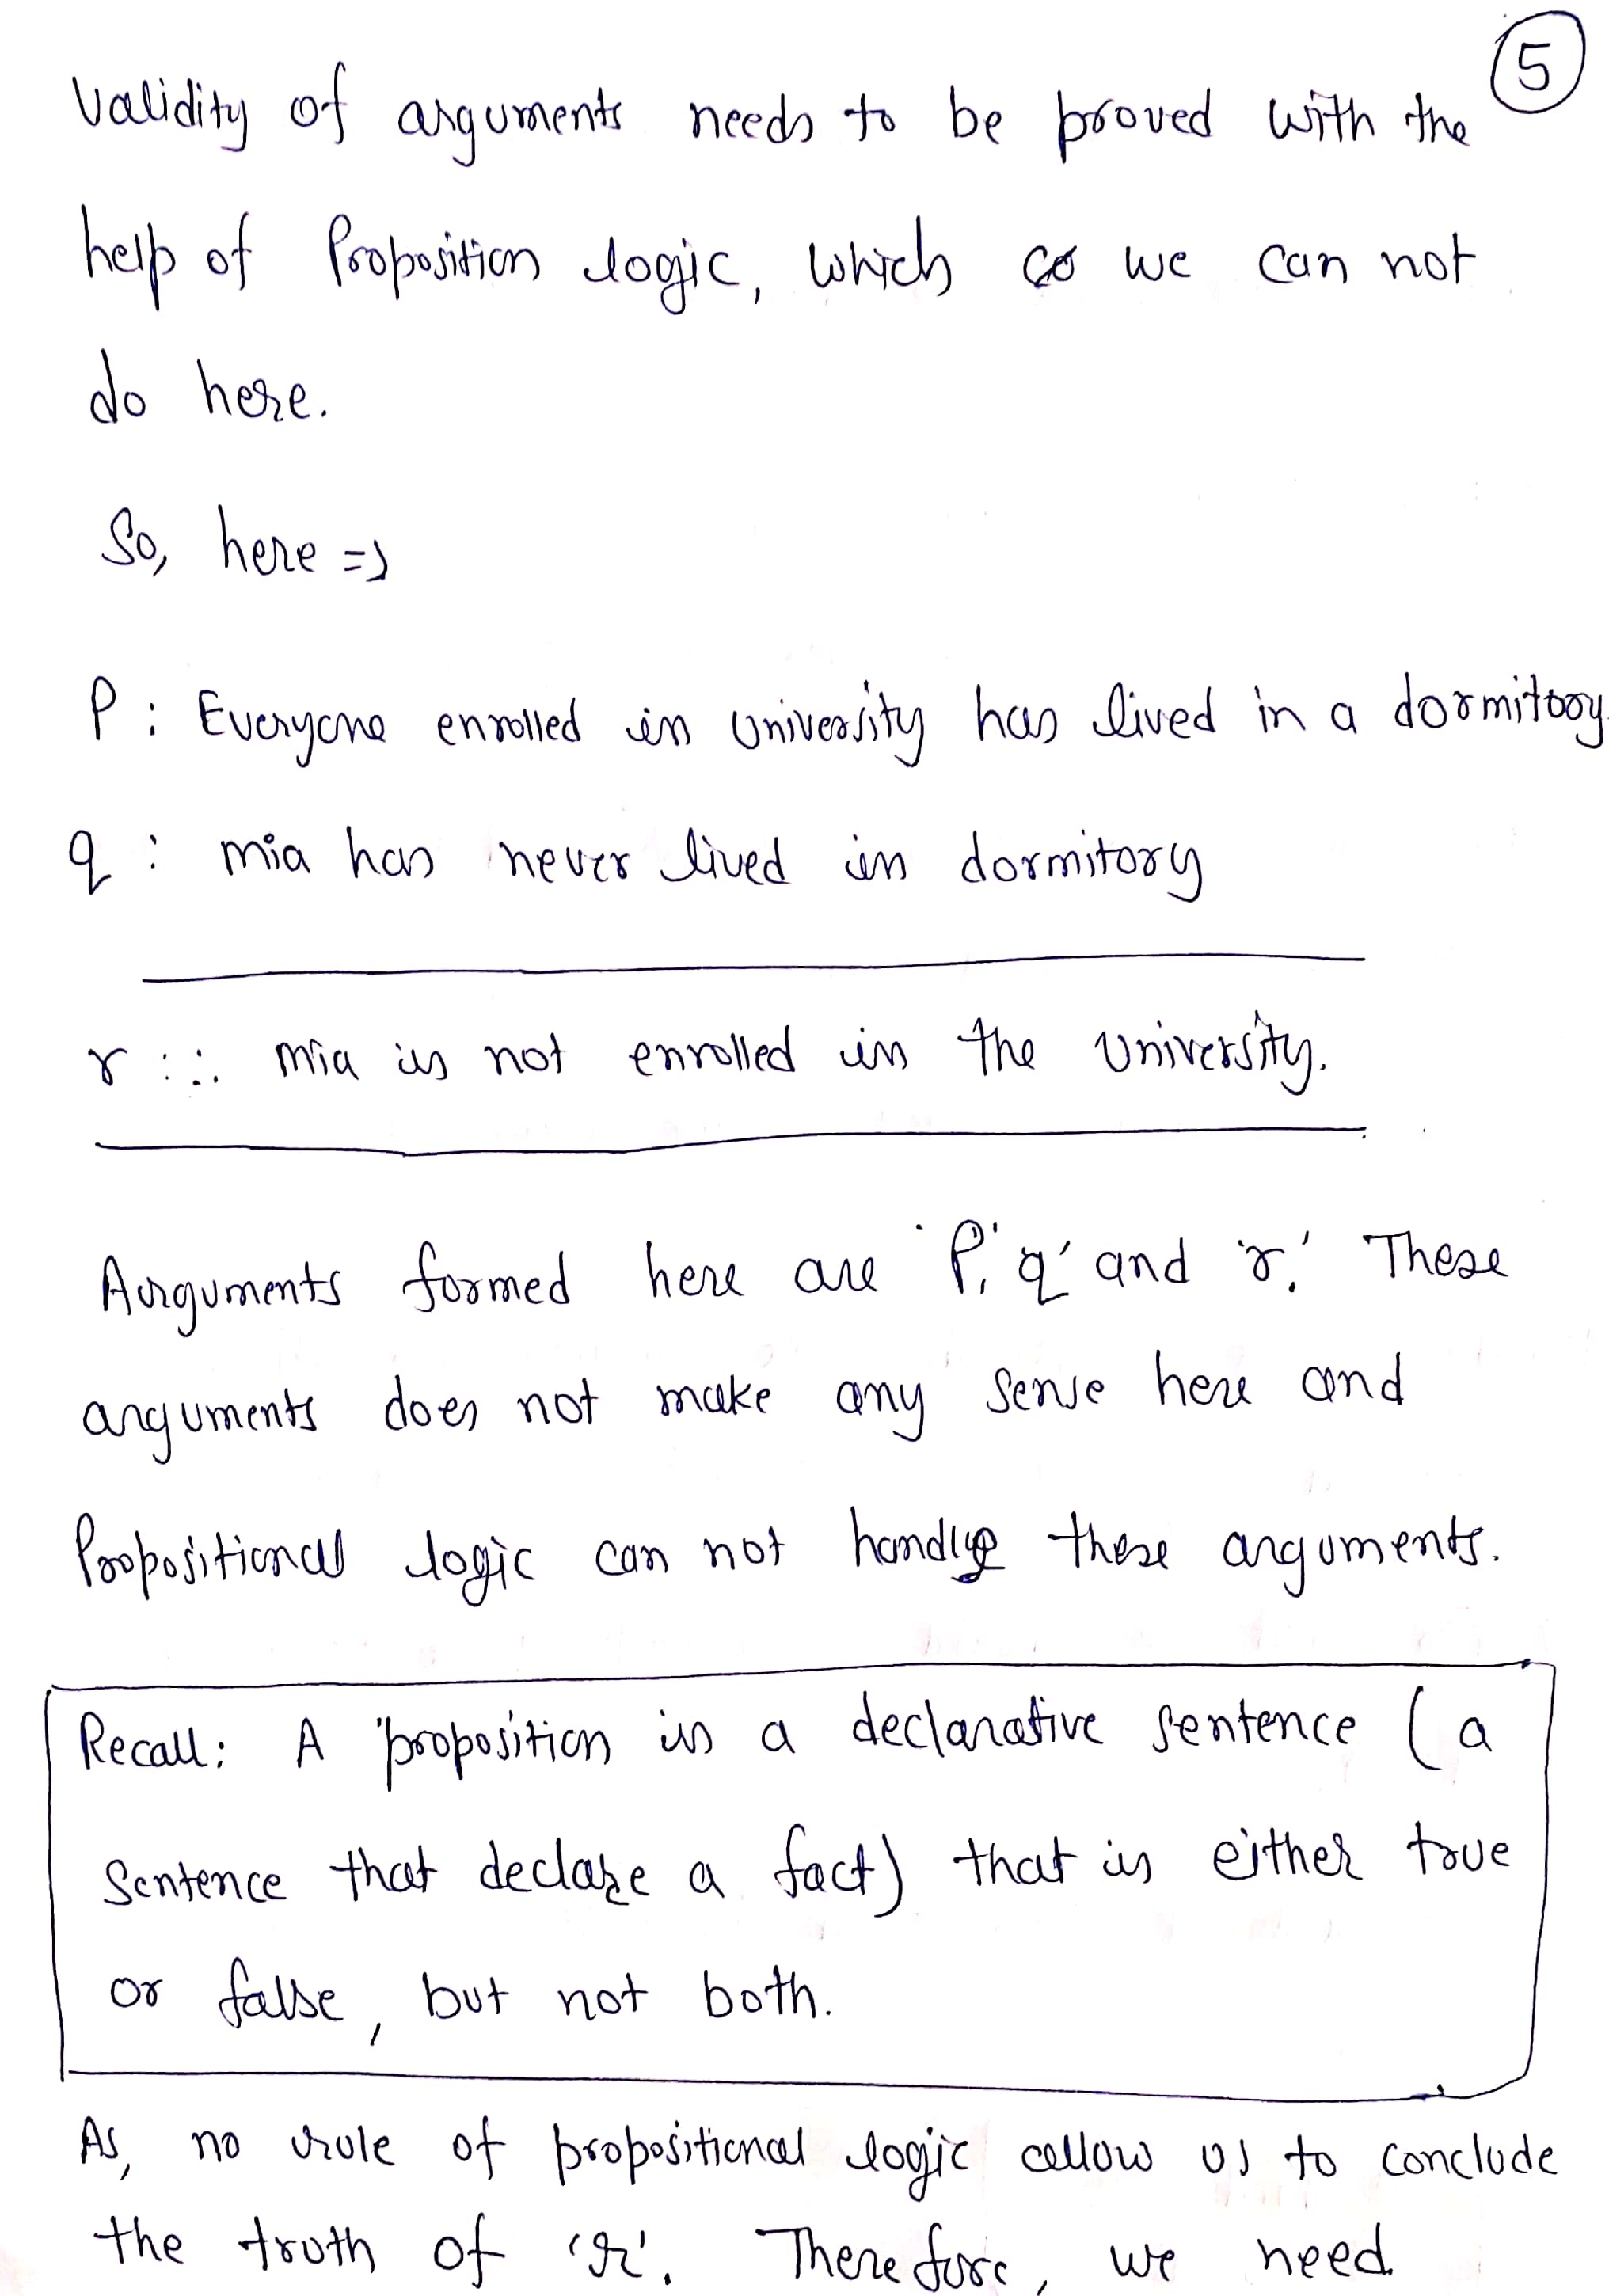 5
Validity of arguments needs to be proved with the
help of Proposition logic, which we can not
do here.
So, here =>
P : Everyone enrolled in University has lived in a dormitory.
q : mia has never lived in dormitory
r : ∴ mia is not enrolled in the University.
Arguments formed here are 'P', 'q' and 'r'. These
arguments does not make any sense here and
Propositional logic can not handle these arguments.
Recall: A proposition is a declarative sentence (a
sentence that declare a fact) that is either true
or false, but not both.
As, no rule of propositional logic allow us to conclude
the truth of 'r'. Therefore, we need